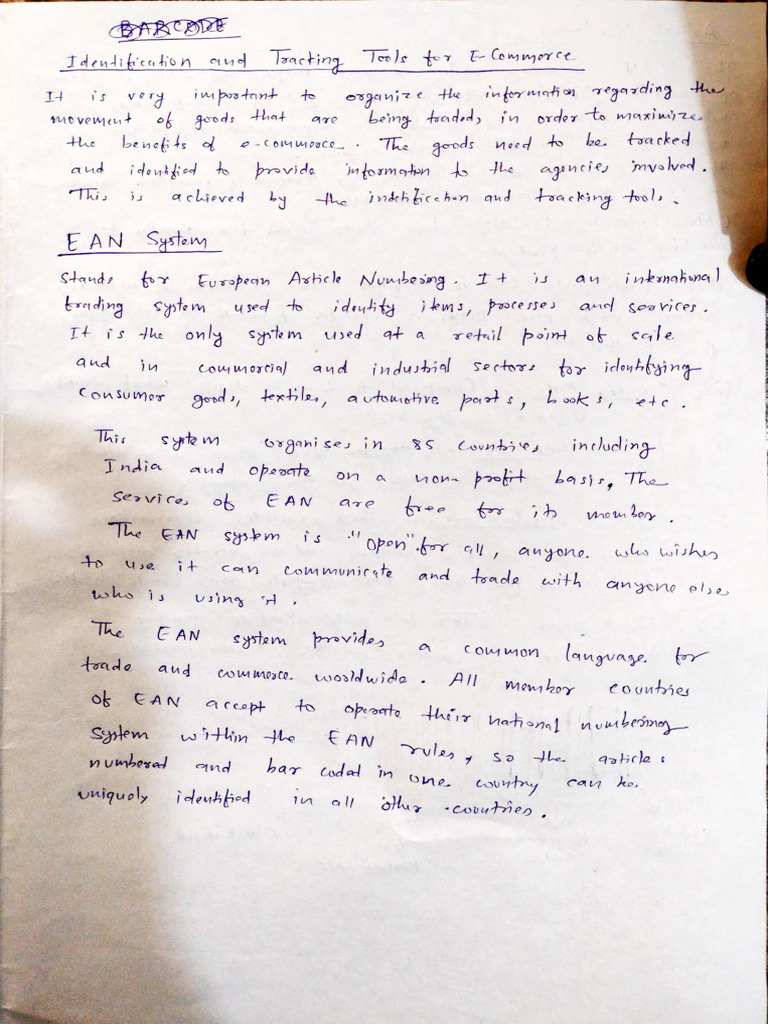 BARCODE
Identification and Tracking Tools for E-Commerce
It is very important to organize the information regarding the
movement of goods that are being traded, in order to maximize
the benefits of e-commerce. The goods need to be tracked
and identified to provide information to the agencies involved.
This is achieved by the indetification and tracking tools.
EAN System
Stands for European Article Numbering. It is an international
trading system used to identify items, processes and services.
It is the only system used at a retail point of scale
and in commercial and industrial sectors for identifying
consumer goods, textiles, automotive parts, books, etc.
This system organises in 85 countries including
India and operate on a non-profit basis, The
services of EAN are free for its member.
The EAN system is "open" for all, anyone who wishes
to use it can communicate and trade with anyone else
who is using it.
The EAN system provides a common language for
trade and commerce worldwide. All member countries
of EAN accept to operate their national numbering
system within the EAN rules, so the articles
numbered and bar coded in one country can be
uniquely identified in all other countries.